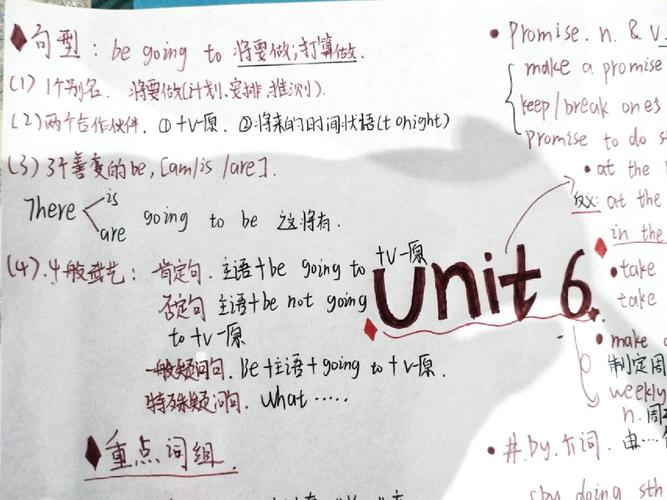 句型：be going to 将要做；打算做.
(1) 1个别名. 将要做(计划.安排.推测).
(2) 两个合作伙伴. ①+v-原. ②将来的时间状语(tonight)
(3) 3个善变的be, [am/is/are].
There is
are going to be 这将有.
(4). 4般武艺：肯定句. 主语+be going to +v-原
否定句 主语+be not going
to +v-原
一般疑问句. Be+主语+going to +v-原.
特殊疑问句. What ……
重点词组.
Unit 6
Promise. n. & v.
make a promise
keep/break ones
Promise to do s
at the
反义: at the
in the
take
take
make
制定周
weekly
n. 周
by. 介词. 由…
by doing sth